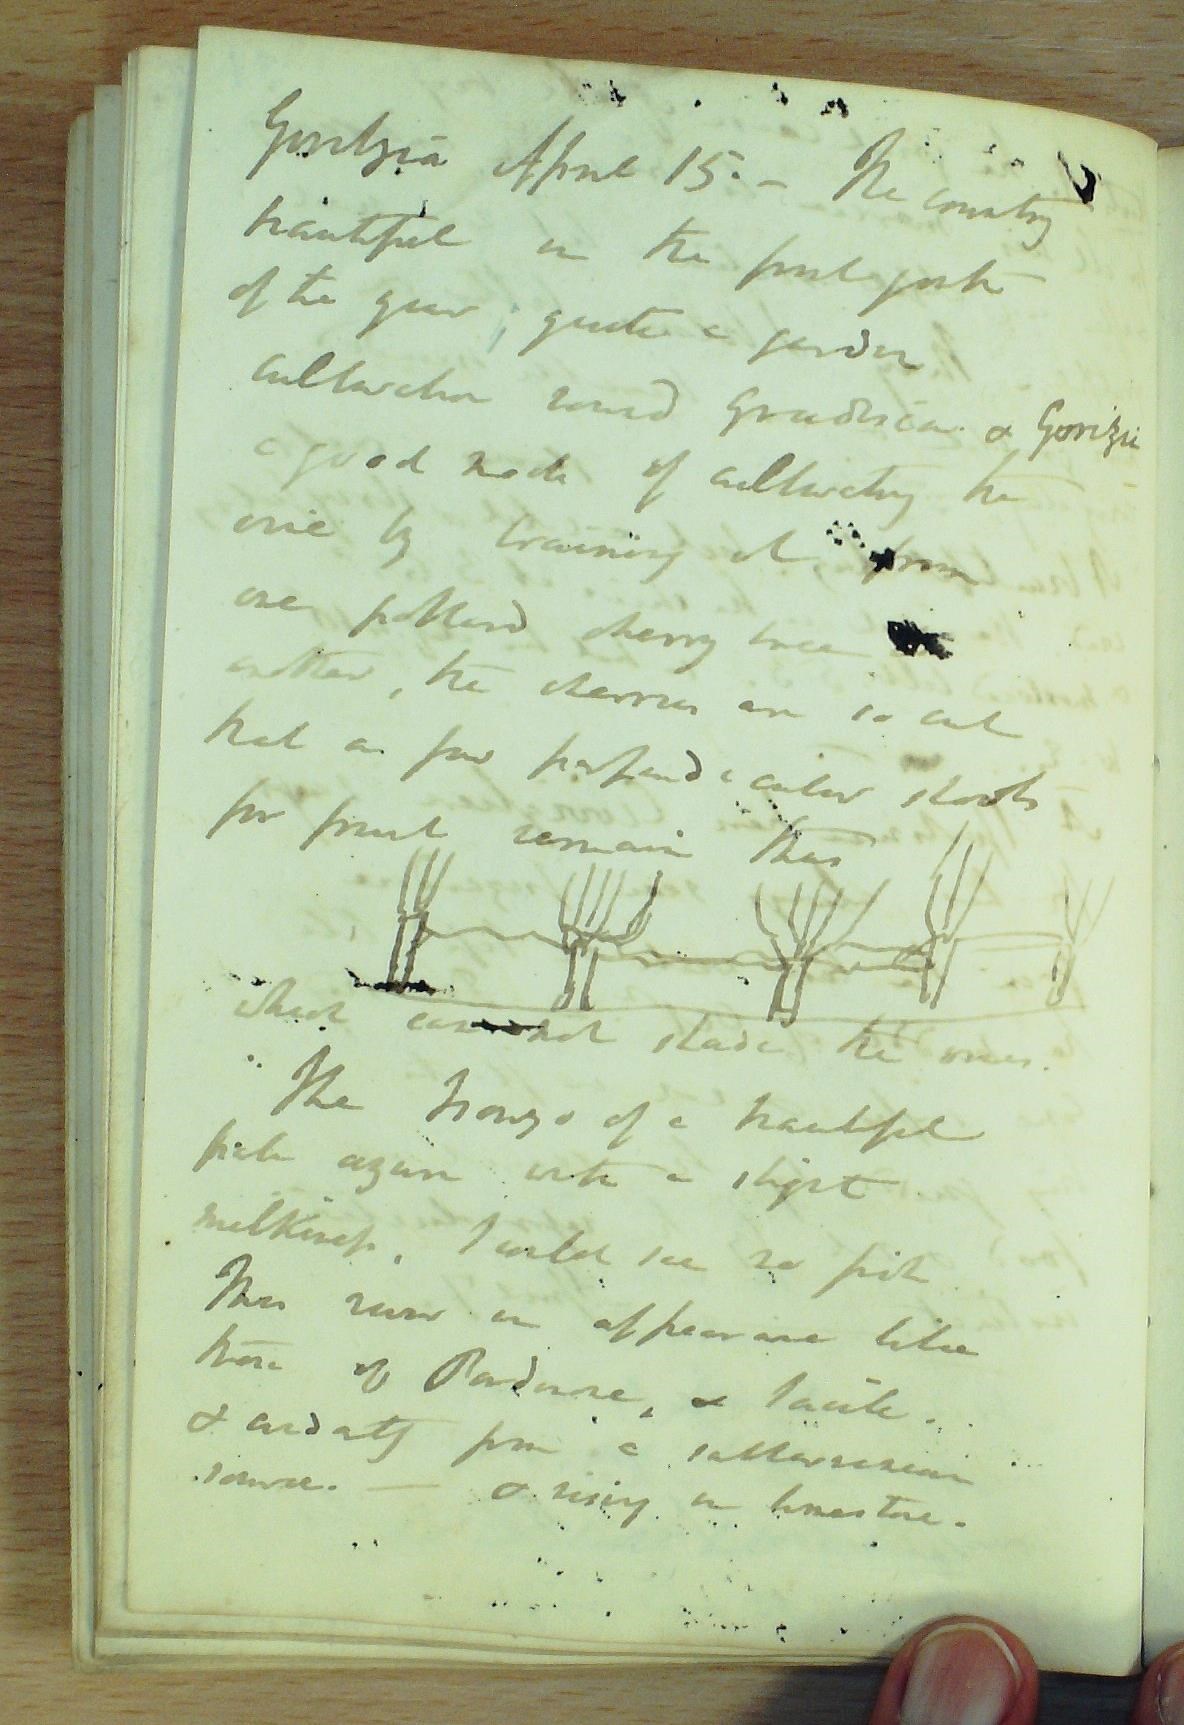 Goritzia April 15. – The country
beautiful in the first part
of the year; quite a garden
cultivation round Gradisca & Gorizia
a good mode of cultivating the
vine by training it from
one pollard cherry tree
another, the cherries are so cut
that a few perpendicular shoots
for fruit remain thus
which cannot shade the vines.
The Isonzo of a beautiful
pale azure with a slight
milkiness. I could see no fish
This river in appearance like
those of Pordenone, & Sacile.
& evidently from a subterranean
source. — & rising in limestone.